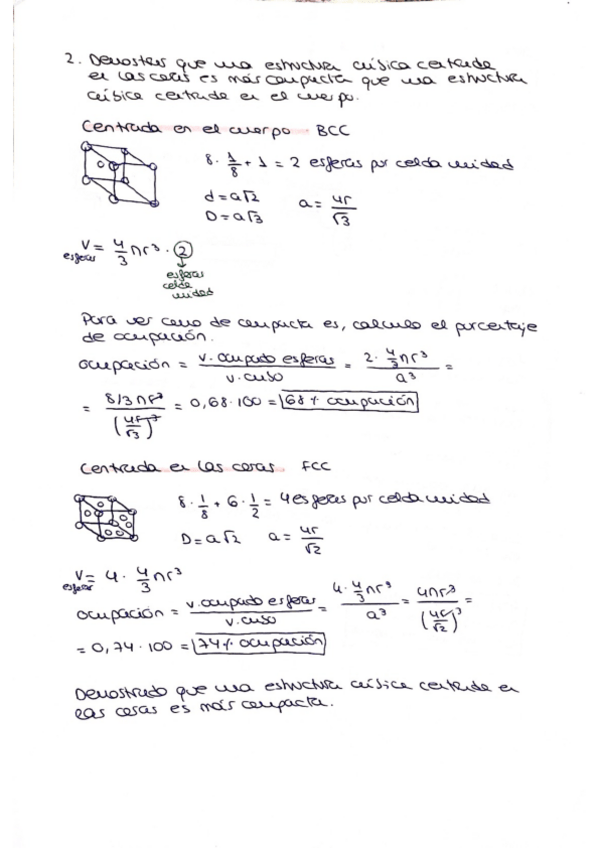 2. Demostrar que una estructura cúbica centrada
en las caras es más compacta que una estructura
cúbica centrada en el cuerpo.
Centrada en el cuerpo BCC
8 · 1/8 + 1 = 2 esferas por celda unidad
d = a√2
D = a√3
a = 4r/√3
V esferas = 4/3 πr³ · 2
esferas
celda
unidad
Para ver como de compacta es, calculo el porcentaje
de ocupación.
ocupación = v. ocupado esferas / v. cubo = 2 · 4/3 πr³ / a³ =
= 8/3 πr³ / (4r/√3)³ = 0,68 · 100 = 68 % ocupación
Centrada en las caras FCC
8 · 1/8 + 6 · 1/2 = 4 esferas por celda unidad
D = a√2 a = 4r/√2
V esferas = 4 · 4/3 πr³
ocupación = v. ocupado esferas / v. cubo = 4 · 4/3 πr³ / a³ = 4πr³ / (4r/√2)³ =
= 0,74 · 100 = 74 % ocupación
Demostrado que una estructura cúbica centrada en
las caras es más compacta.